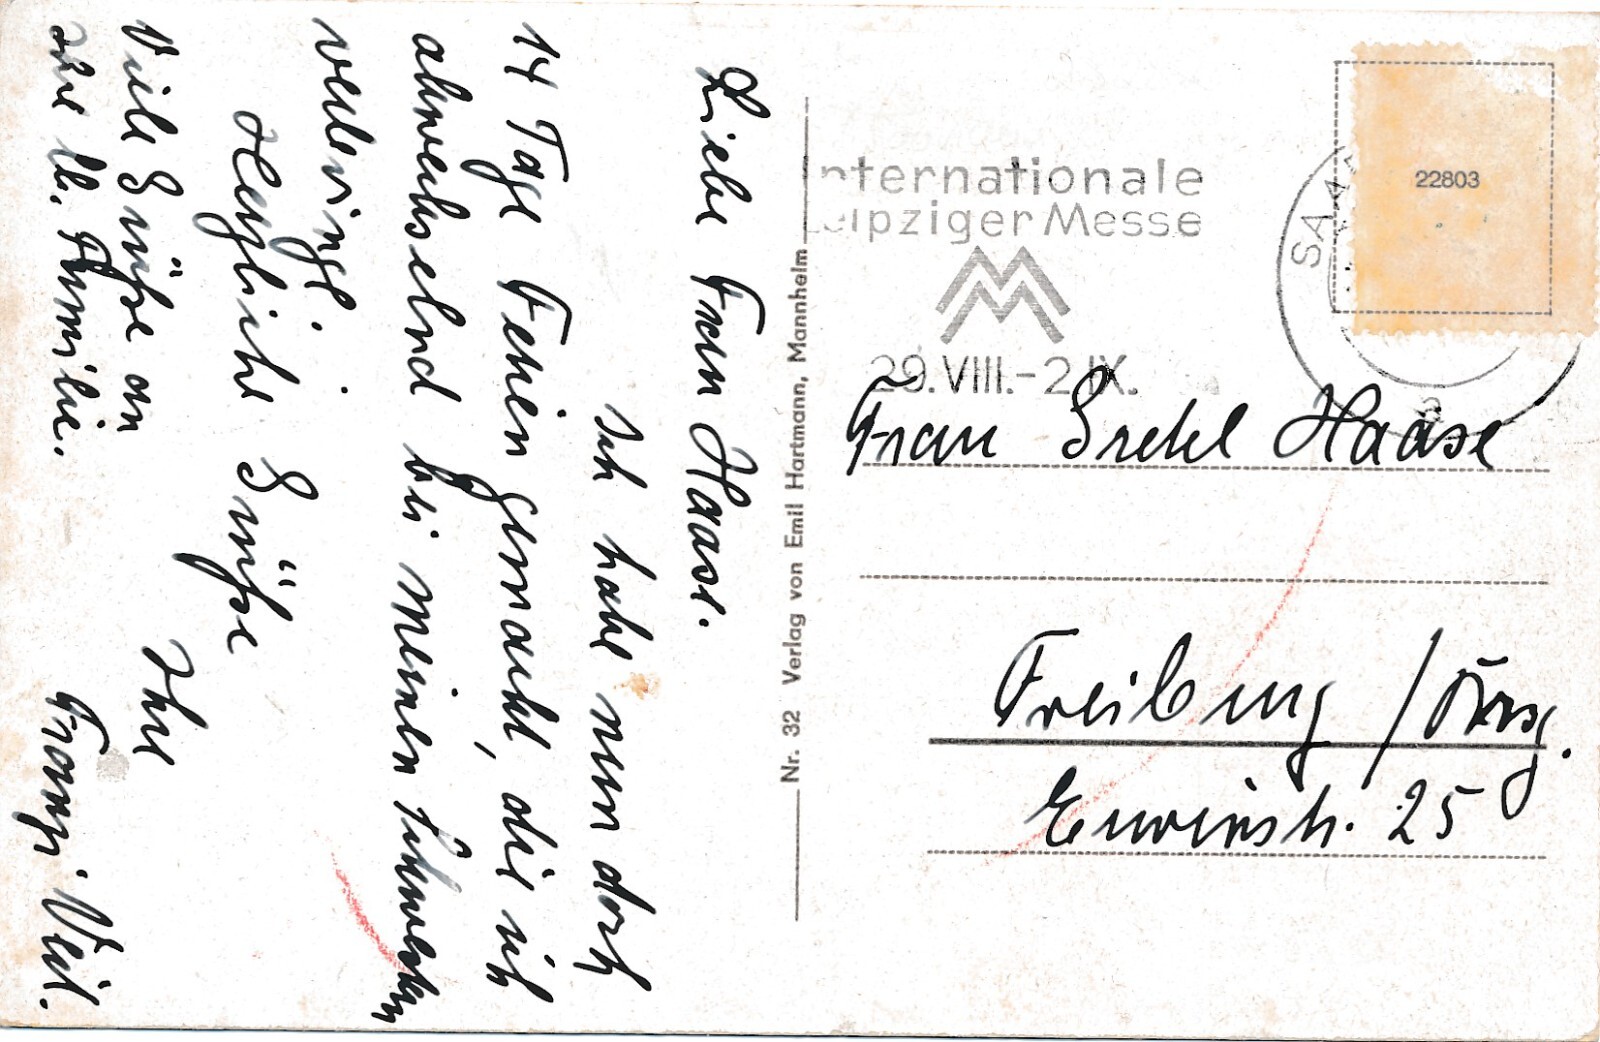 Liebe Frau Haase.
Ich habe nun doch
14 Tage Ferien gemacht, die ich
abwechselnd bei meinen Schwestern
verbringe.
Herzliche Grüße
Ihre
Franzi Weil.
Viele Grüße an
Ihre lb. Familie.
Nr. 32 Verlag von Emil Hartmann, Mannheim
Internationale
Leipziger Messe
29.VIII.-2.IX.
22803
Frau Gretel Haase
Freiburg / Brsg.
Erwinstr. 25